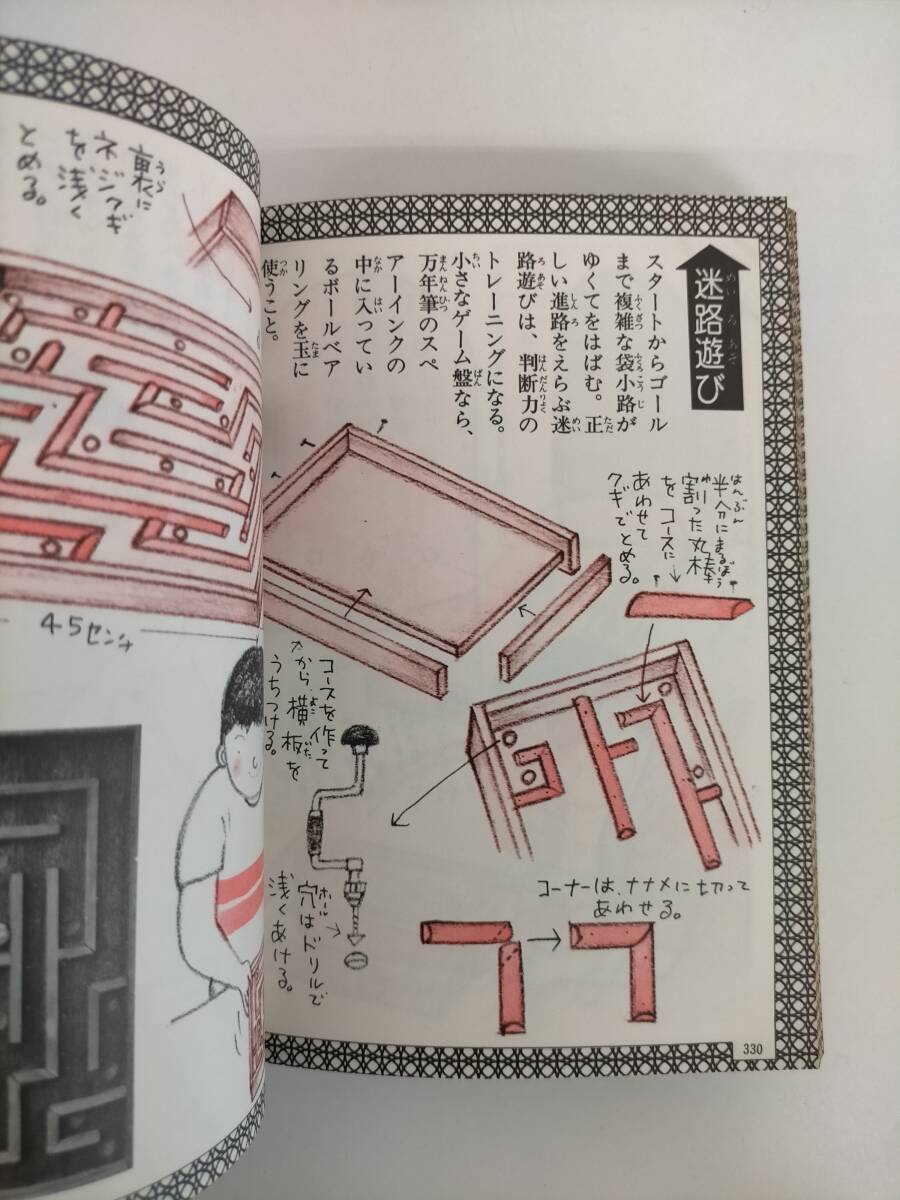 迷路遊び
スタートからゴール
まで複雑な袋小路が
ゆくてをはばむ。正
しい進路をえらぶ迷
路遊びは、判断力の
トレーニングになる。
小さなゲーム盤なら、
万年筆のスペ
アーインクの
中に入ってい
るボールベア
リングを玉に
使うこと。
半分に
割った丸棒
をコースに
あわせて
クギでとめる。
コースを作って
から、横板を
うちつける。
穴はドリルで
浅くあける。
コーナーは、ナナメに切って
あわせる。
330
裏に
ネジクギ
を浅く
とめる。
45センチ